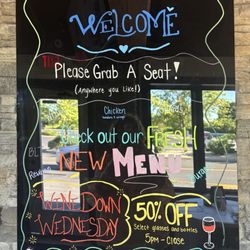 WELCOME
Please Grab A Seat!
(Anywhere you Like!)
Chicken
Check out our FRESH
NEW MENU
WINE DOWN
WEDNESDAY
50% OFF
Select glasses and bottles
5pm - Close